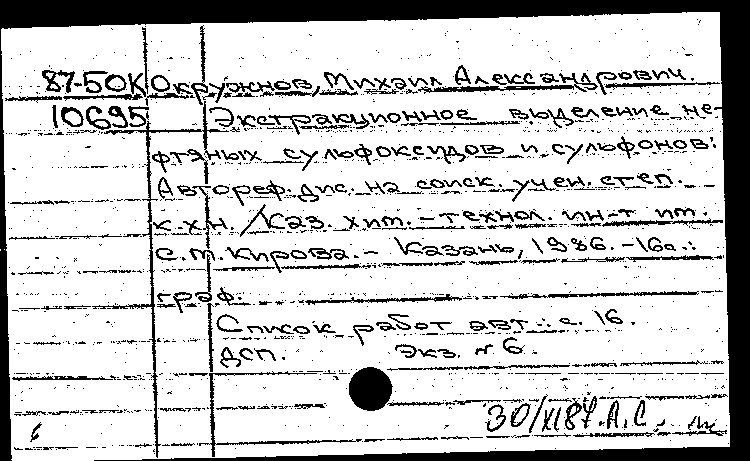 87-50К Окружнов, Михаил Александрович.
10695 Экстракционное выделение не-
фтяных сульфоксидов и сульфонов:
Автореф. дис. на соиск. учен. степ.
к.х.н. / Каз. хим. - технол. ин-т им.
С.М. Кирова. - Казань, 1986. - 16с.:
граф.
Список работ авт.: с. 16.
ДСП. Экз. № 6.
30/XI87. А.С.